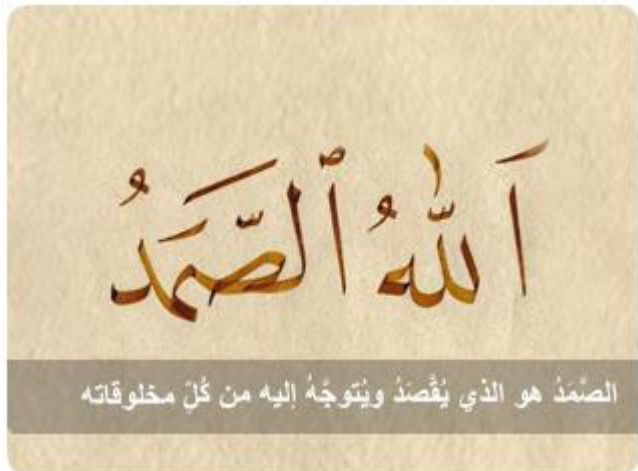 ٱللَّهُ ٱلصَّمَدُ
الصَّمَدُ هو الذي يُقَّصَدُ ويُتوجَّهُ إليه من كُلِّ مخلوقاته